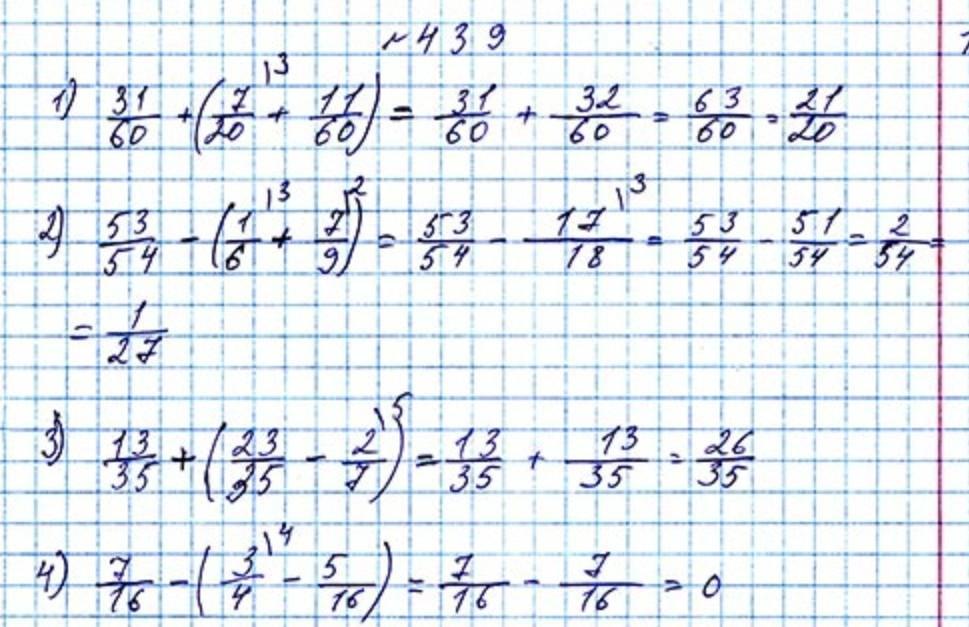 № 439
1) 31/60 + (7/20 \3 + 11/60) = 31/60 + 32/60 = 63/60 = 21/20
2) 53/54 - (1/6 \3 + 7/9 \2) = 53/54 - 17/18 \3 = 53/54 - 51/54 = 2/54 =
= 1/27
3) 13/35 + (23/35 - 2/7 \5) = 13/35 + 13/35 = 26/35
4) 7/16 - (3/4 \4 - 5/16) = 7/16 - 7/16 = 0